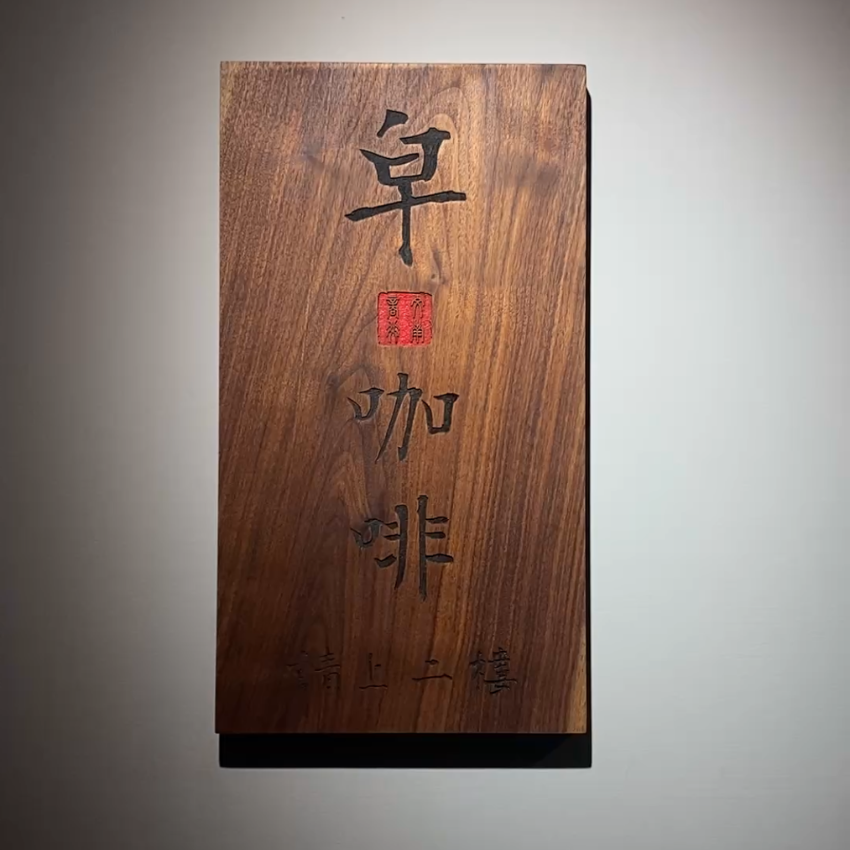 皁咖啡
請上二樓